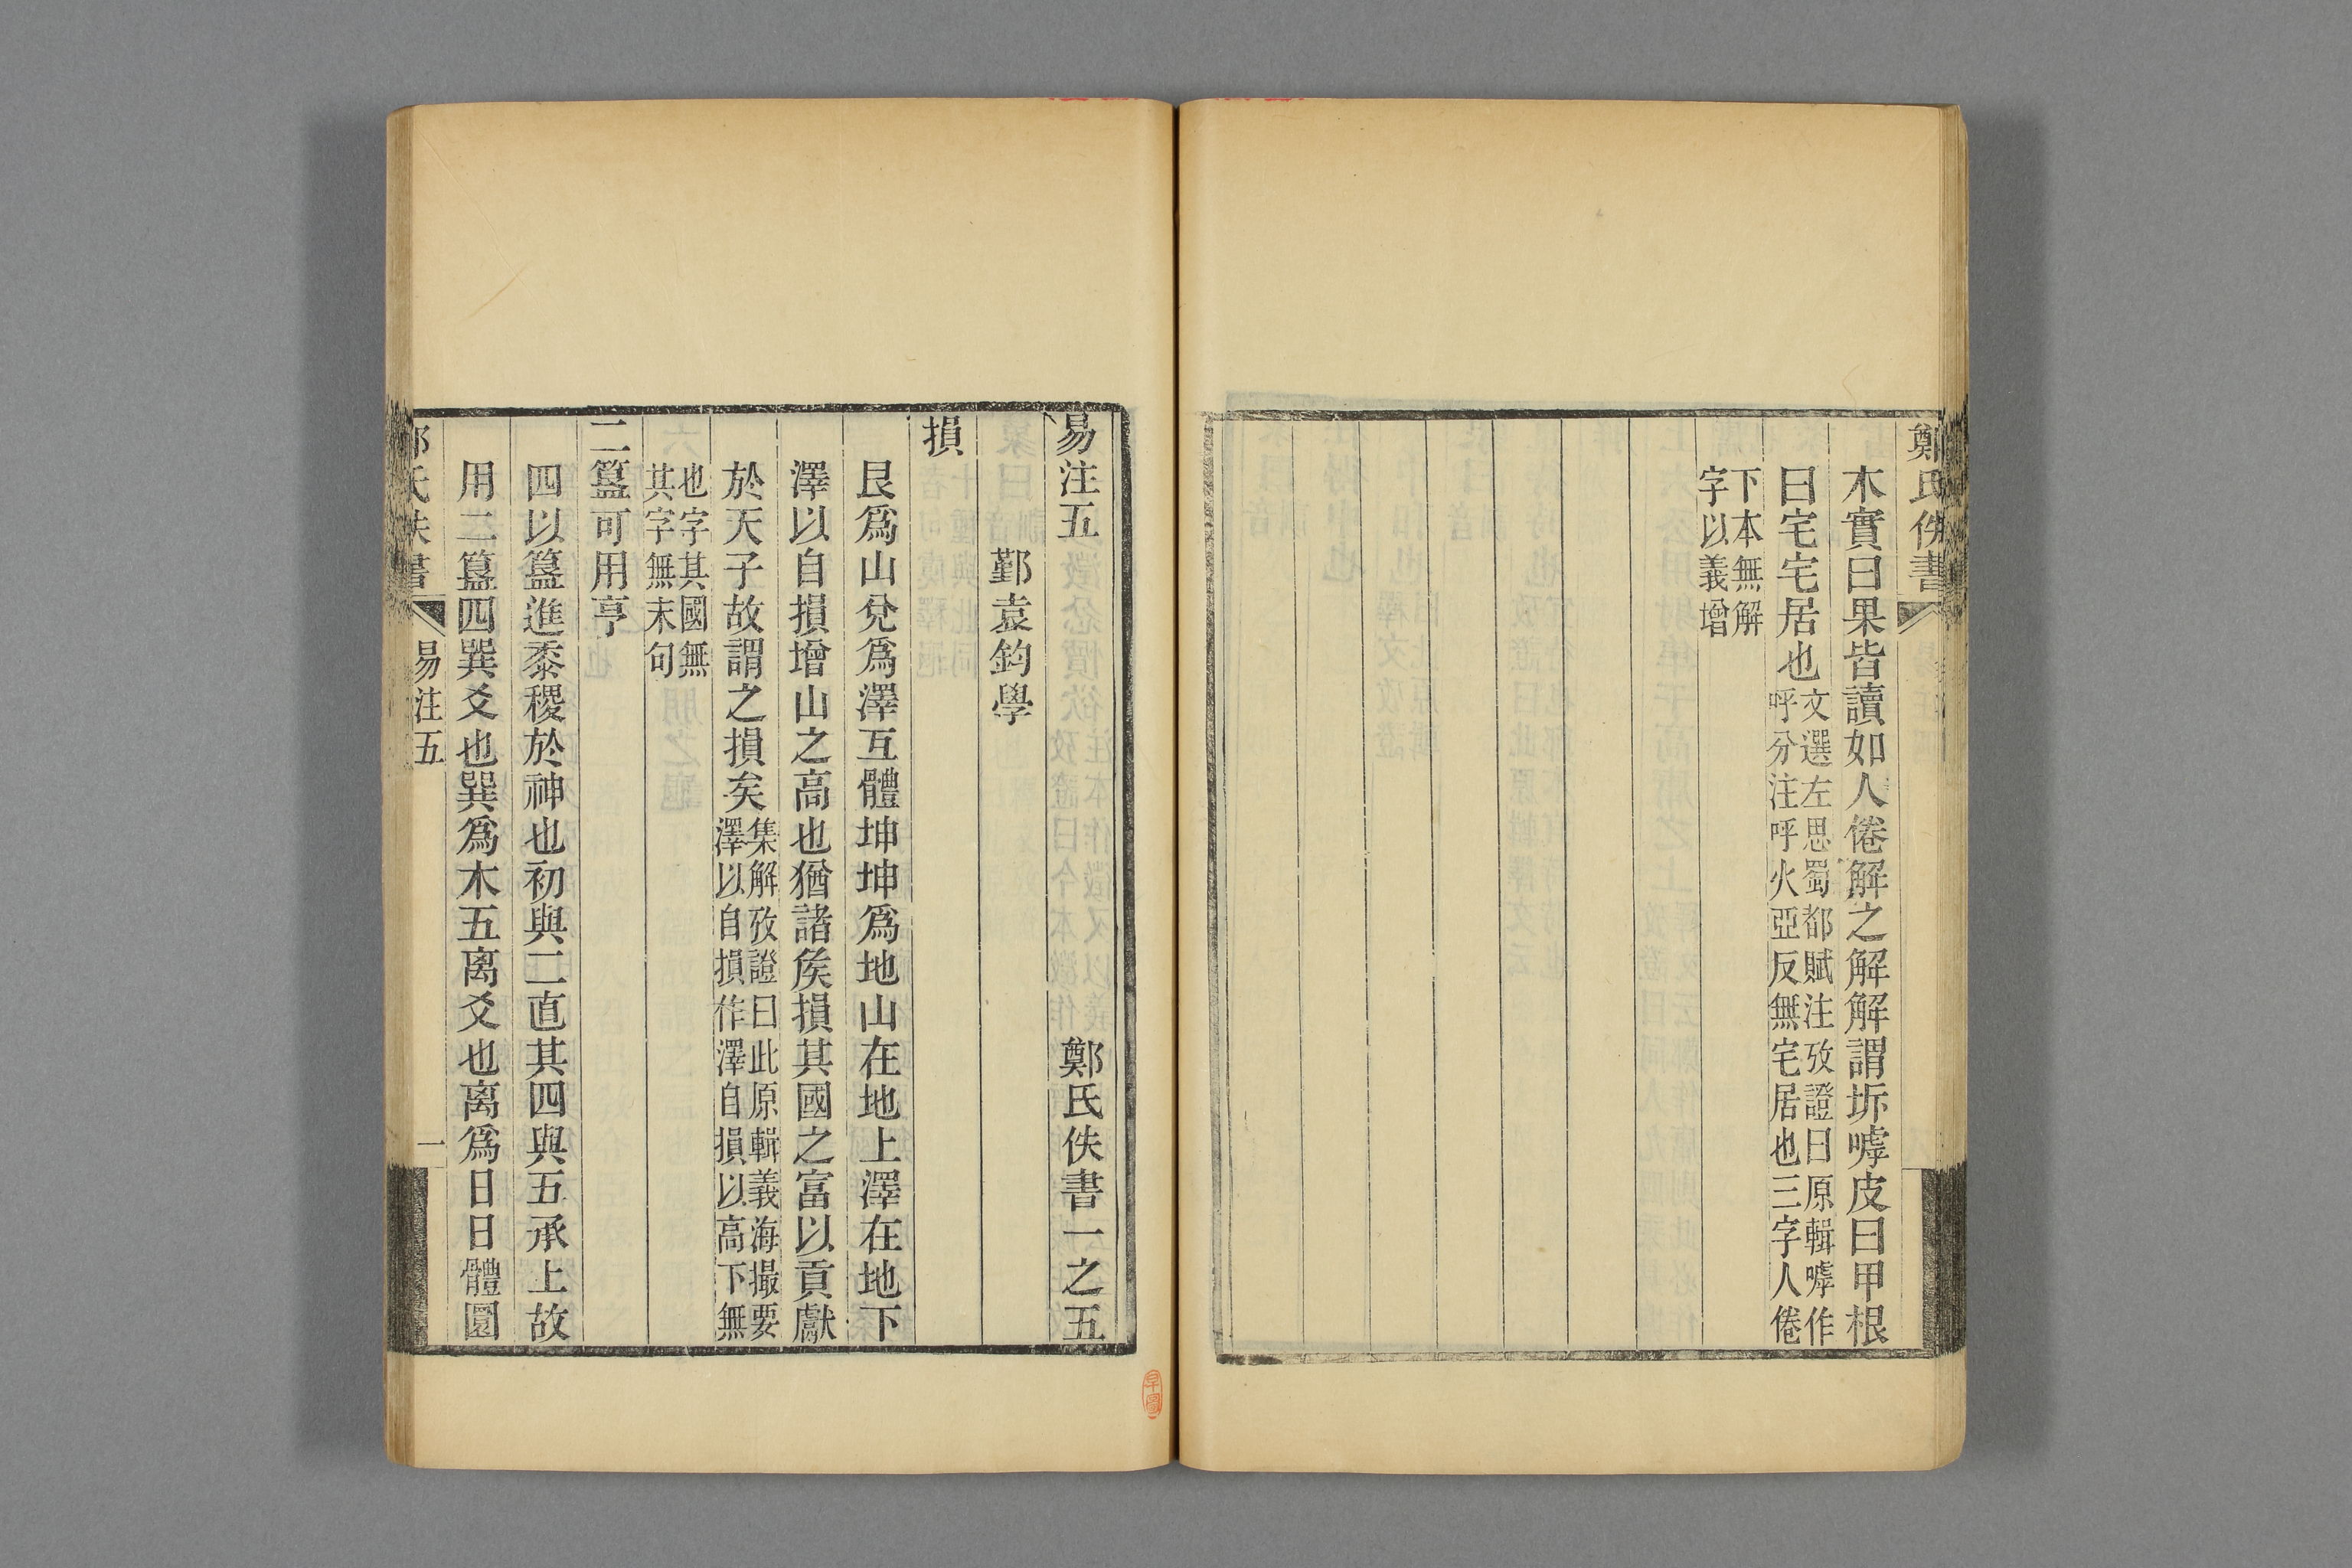 鄭氏佚書
木實曰果皆讀如人倦解之解解謂坼嘑皮曰甲根
曰宅宅居也文選左思蜀都賦注攷證曰原輯嘑作
呼分注呼火亞反無宅居也三字人倦
下本無解
字以義增
易注五 鄭氏佚書一之五
鄞袁鈞學
損
艮爲山兌爲澤互體坤坤爲地山在地上澤在地下
澤以自損增山之高也猶諸矦損其國之富以貢獻
於天子故謂之損矣集解攷證曰此原輯義海撮要
澤以自損作澤自損以高下無
也字其國無
其字無末句
二簋可用亨
四以簋進黍稷於神也初與二直其四與五承上故
用二簋四巽爻也巽爲木五离爻也离爲日日體圜
鄭氏佚書 易注五 一